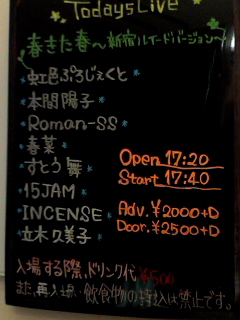 Todays Live
春きた春～新宿ルイードバージョン～
虹色ぷろじぇくと
本間陽子
Roman-SS
春菜
すとう舞
15JAM
INCENSE
立木久美子
Open 17:20
Start 17:40
Adv. ¥2000+D
Door. ¥2500+D
入場する際、ドリンク代¥500
また、再入場・飲食物の持込は禁止です。